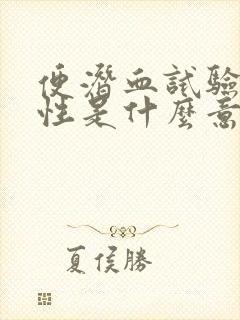 便潛血試驗
性是什麼意
夏侯勝